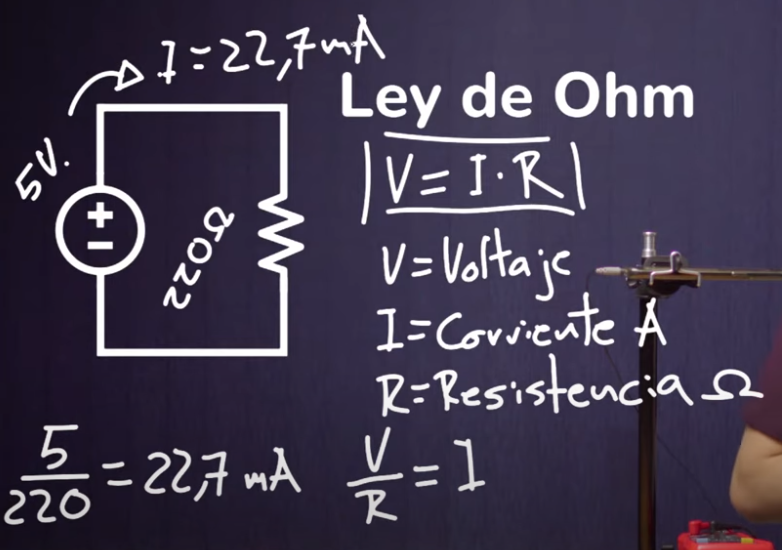 I=22,7mA
Ley de Ohm
5V.
V=I·R
220Ω
V=Voltaje
I=Corriente A
R=Resistencia Ω
5/220=22,7 mA
V/R=I